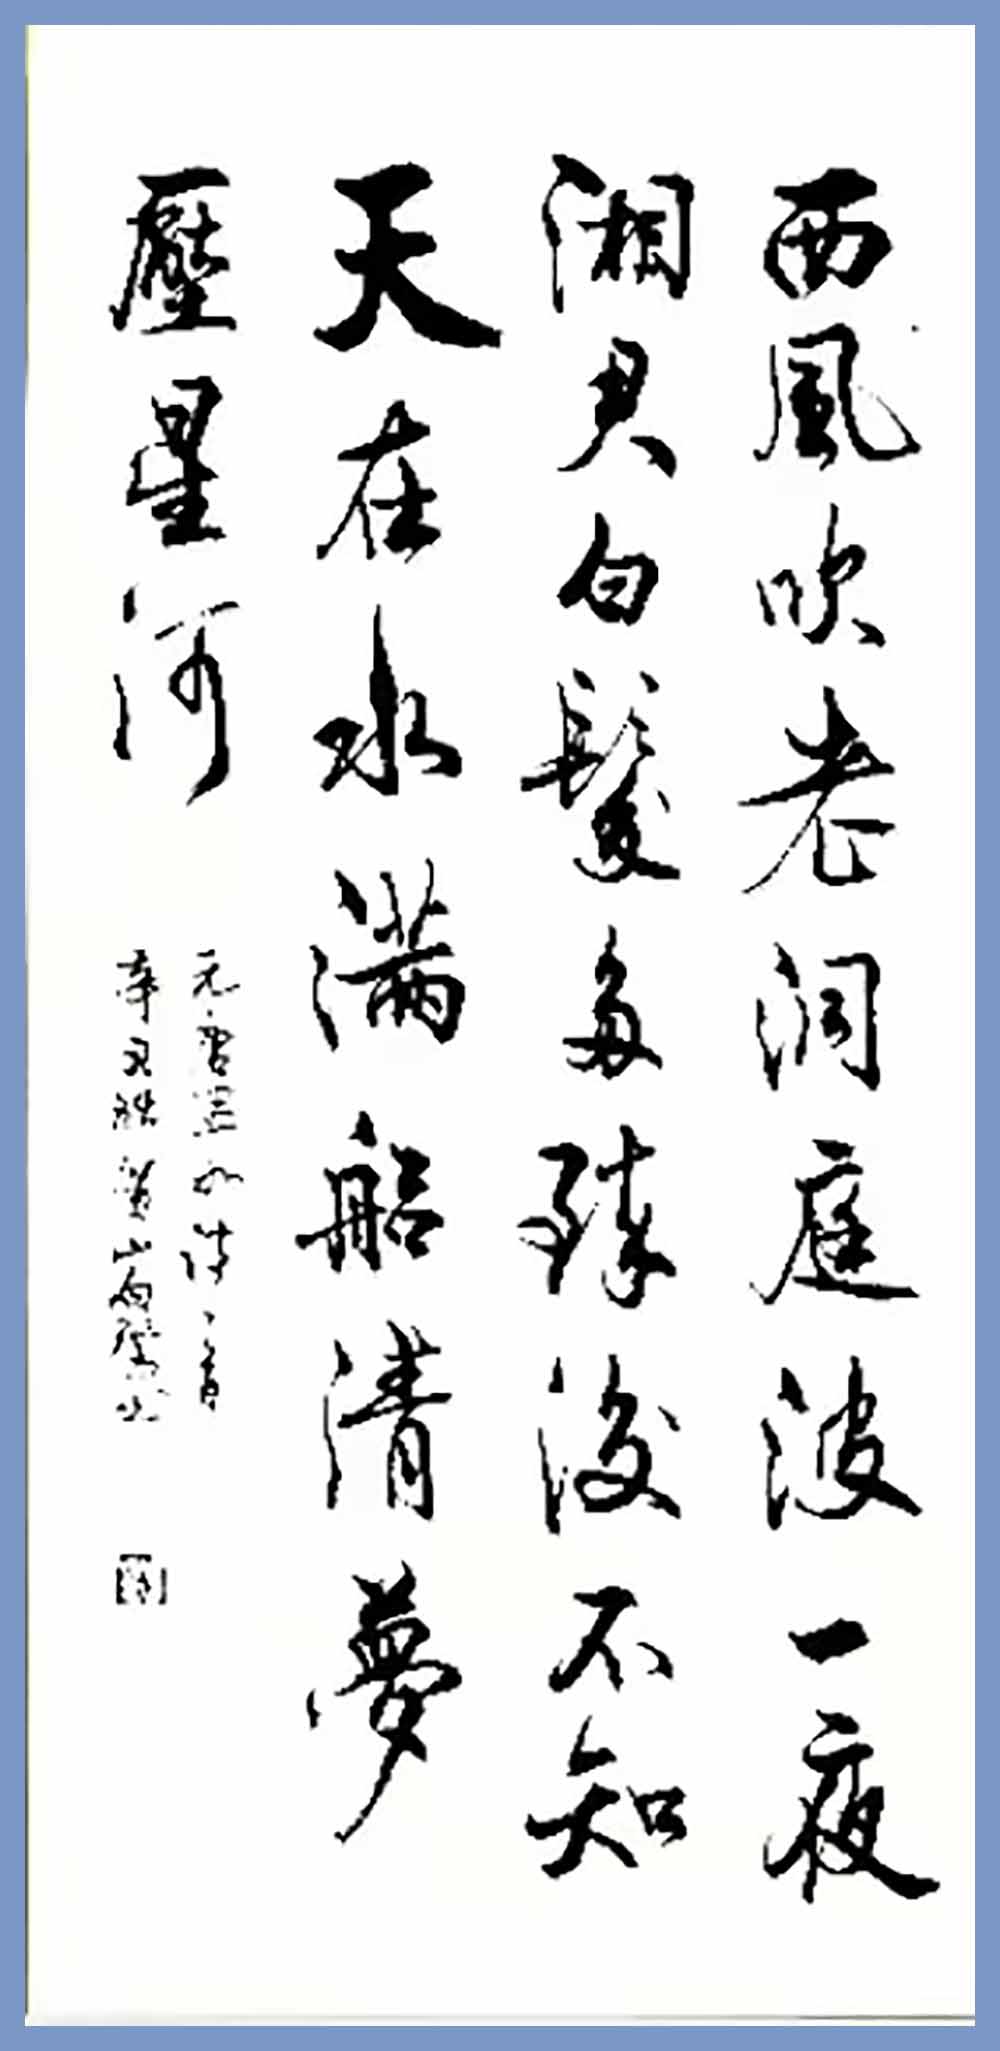 西風吹老洞庭波一夜
湘君白髮多醉後不知
天在水滿船清夢
壓星河
元唐溫如詩一首